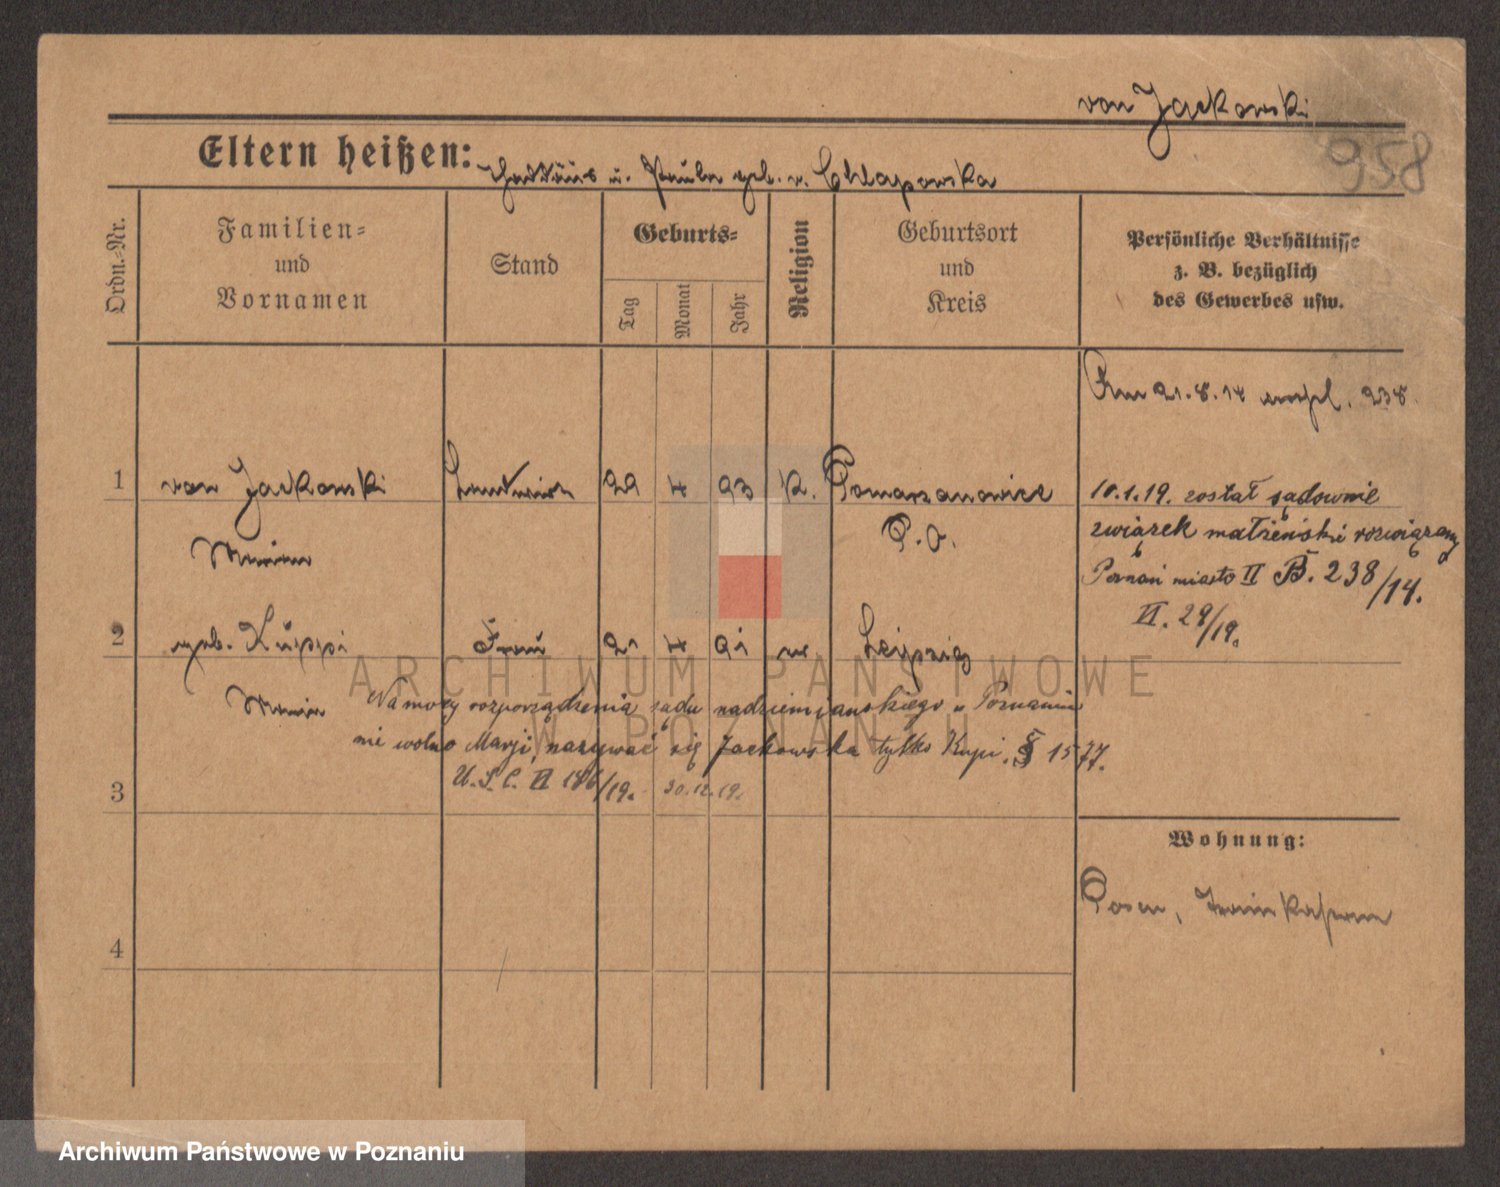 von Jackowski
958
Eltern heißen: Thaddäus u. Paula geb. v. Chlapowska
Ordn.-Nr.
Familien-
und
Vornamen
Stand
Geburts-
Tag
Monat
Jahr
Religion
Geburtsort
und
Kreis
Persönliche Verhältnisse
z. B. bezüglich
des Gewerbes usw.
Am 21.8.14 238
1 von Jackowski Landwirt 29 4 93 K. Pomarzanowice
P. O.
10.1.19. został sądownie
związek małżeński rozwiązany
Poznań miasto II B. 238/14.
VI. 29/19.
2 geb. Küppi Frau 21 4 91 Leipzig
Na mocy rozporządzenia sądu nadziemiańskiego w Poznaniu
nie wolno Marji nazywać się Jackowska tylko Kupi. § 1577.
U.S.C. VI 186/19. 30.12.19.
3
Wohnung:
Posen, Trainkaserne
4
ARCHIWUM PAŃSTWOWE
W POZNANIU
Archiwum Państwowe w Poznaniu